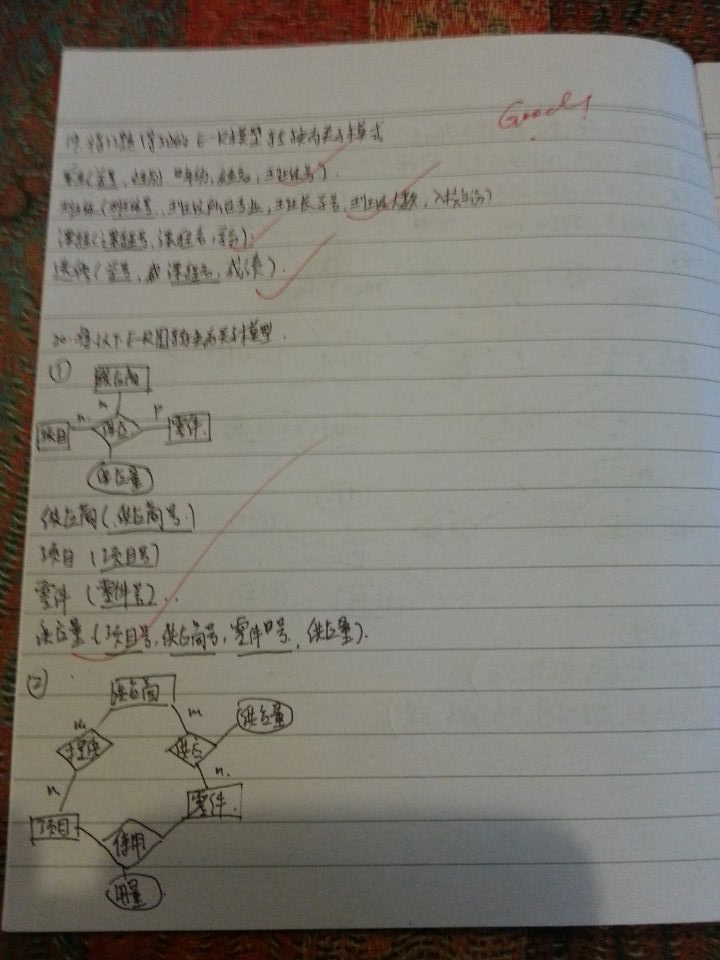 Good!
19. 将17题得到的E-R模型转换为关系模式
(学号, 性别, 姓名, 班级号).
班级(班级号, 班级所在专业, 班长学号, 班级人数, 入校年份)
课程(课程号, 课程名, 学分).
选修(学号, 课程号, 成绩).
20. 将以下E-R图转换为关系模型.
①
供应商
m
n.
p
项目
供应
零件.
供应量
供应商(供应商号.)
项目 (项目号)
零件 (零件号)..
供应量(项目号, 供应商号, 零件号, 供应量).
②
供应商
m
m
供应量
提供
供应
n
n.
零件.
项目
使用
用量